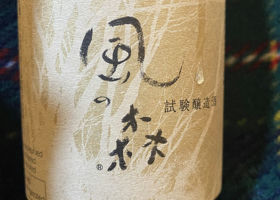 風の森
®
試験醸造酒